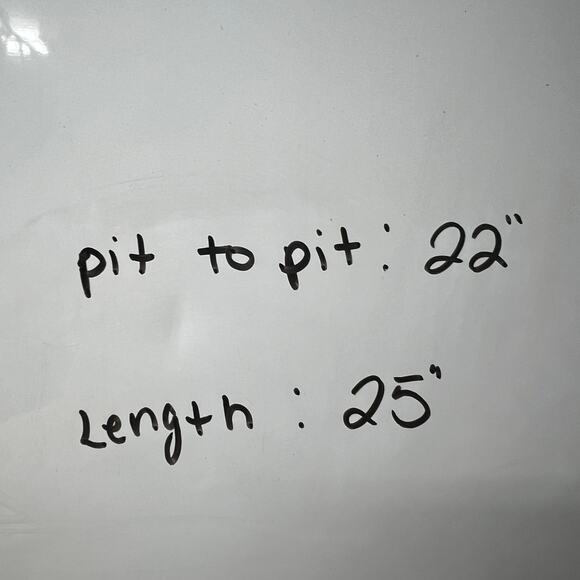 pit to pit: 22"
Length : 25"